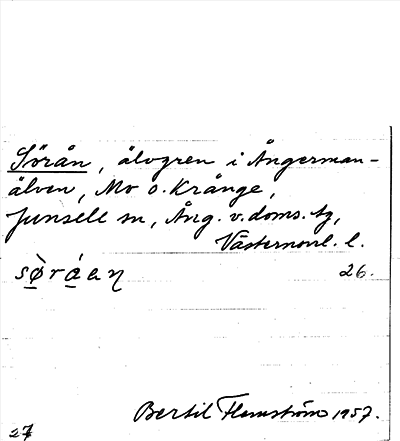 Sörån, älvgren i Ångerman-
älven, Mo o. Krånge,
Junsele sn, Ång. v. doms. tg,
Västernorrl. l.
sø̀ráen 26.
Bertil Flemström 1957.
27